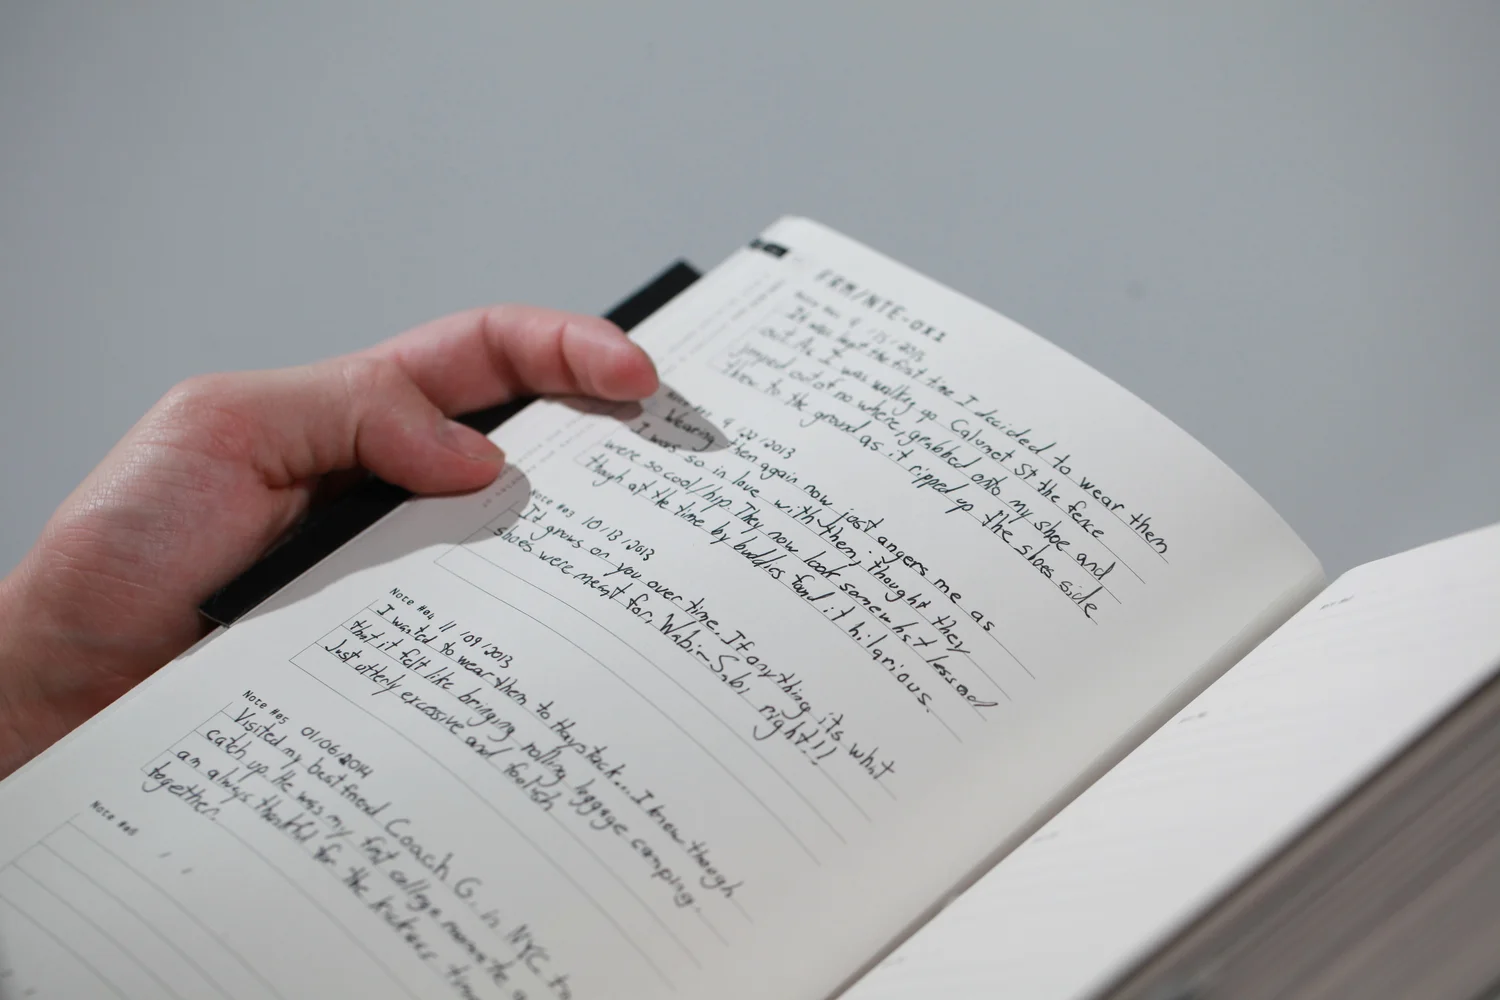 FRM/NTE-OX1
9/15/2013
It was the first time I decided to wear them
out. As I was walking up Calumet St the fence
jumped out of no where, grabbed onto my shoe and
threw to the ground as it ripped up the shoes side
9/22/2013
Wearing then again now just angers me as
I was so in love with them; thought they
were so cool/hip. They now look somewhat less and
though at the time by buddies found it hilarious.
Note #03 10/13/2013
It grows on you over time. If anything its what
shoes were meant for. Wabi-Sabi right!!
Note #04 11/09/2013
I wanted to wear them to Haystack... I know though
that it felt like bringing rolling luggage camping.
Just utterly excessive and foolish
Note #05 01/06/2014
Visited my best friend Coach G. in NYC to
catch up. He was my first college roommate &
am always thankful for the kickass time
together.
Note #06